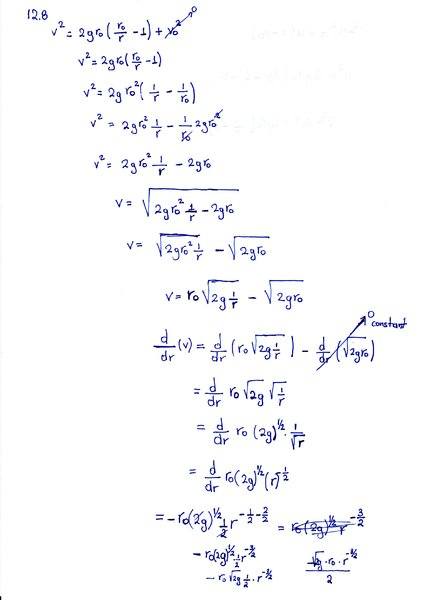 12.8
v² = 2gr₀(r₀/r - 1) + v₀² → 0
v² = 2gr₀(r₀/r - 1)
v² = 2gr₀²(1/r - 1/r₀)
v² = 2gr₀² 1/r - 1/r₀ 2gr₀²
v² = 2gr₀² 1/r - 2gr₀
v = √(2gr₀² 1/r - 2gr₀)
v = √(2gr₀² 1/r) - √(2gr₀)
v = r₀ √(2g 1/r) - √(2gr₀)
d/dr (v) = d/dr (r₀ √(2g 1/r)) - d/dr (√(2gr₀)) → 0 constant
= d/dr r₀ √2g √(1/r)
= d/dr r₀ (2g)^½ · 1/√r
= d/dr r₀ (2g)^½ (r)^-½
= -r₀(2g)^½ ½ r^(-½-2/2) = r₀(2g)^½ r^-3/2
-r₀(2g)^½ ½ r^-3/2
-r₀ √2g ½ · r^-3/2
-√2g · r₀ · r^-3/2 / 2